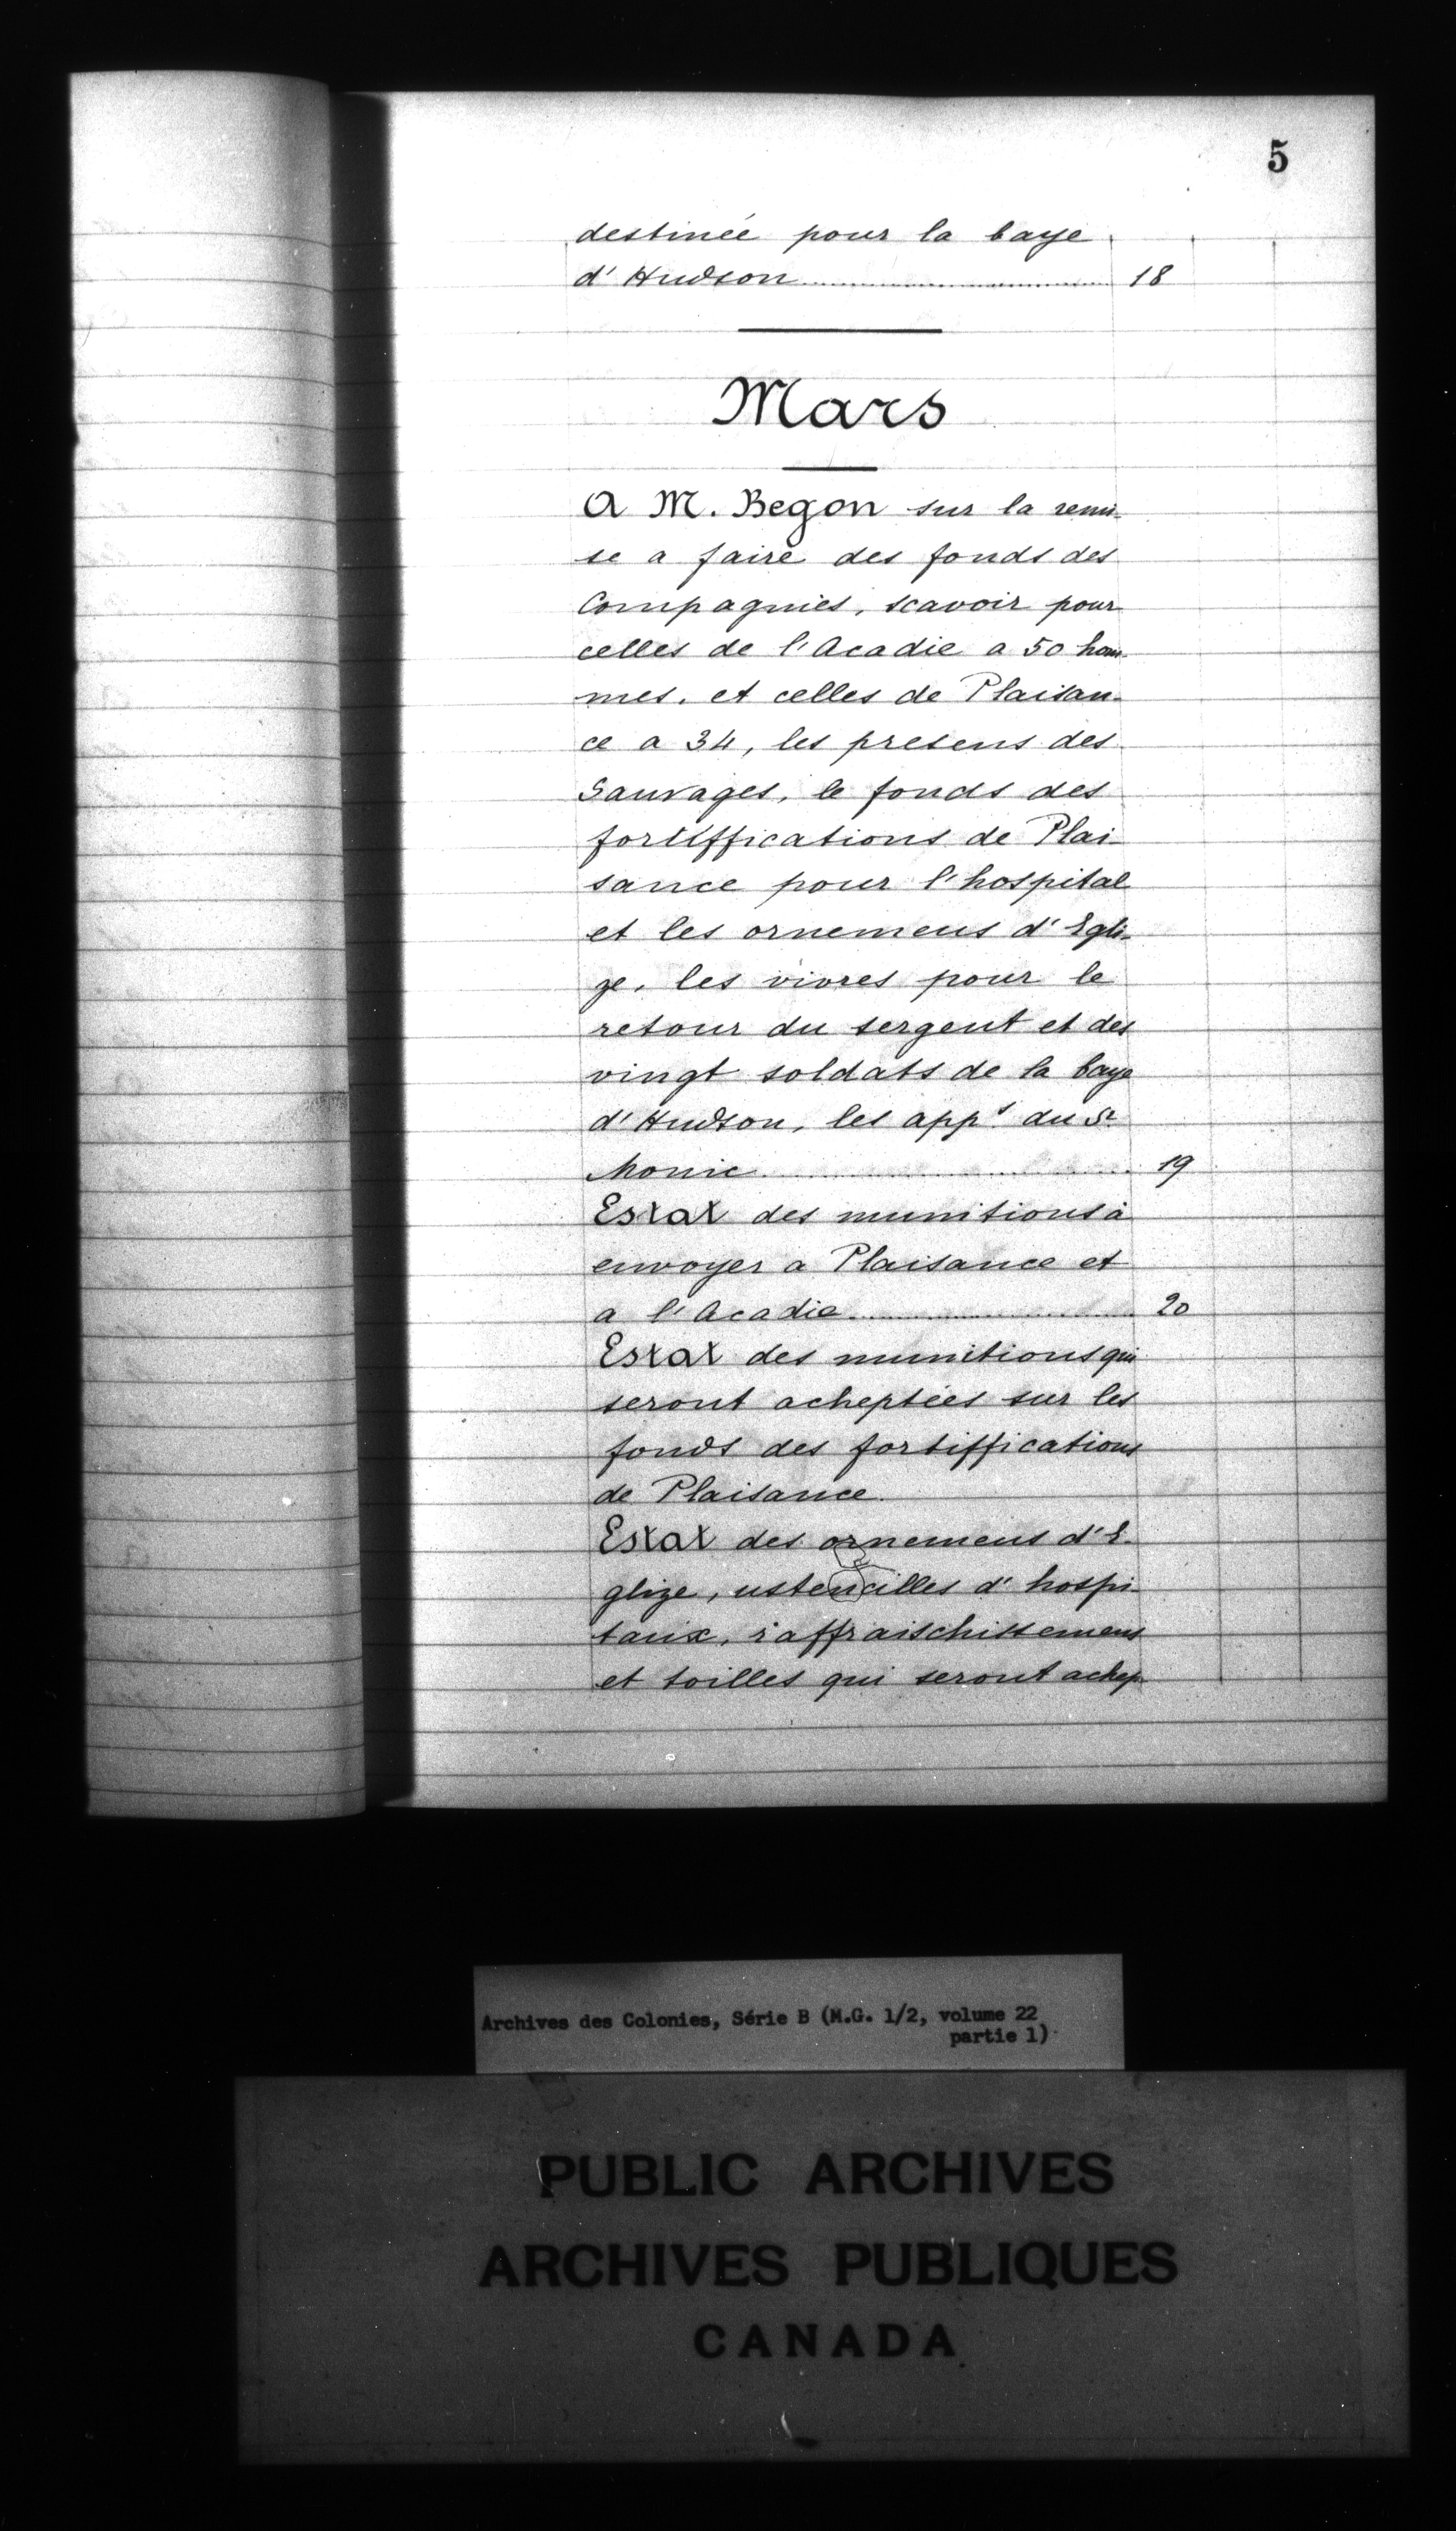 5
destinée pour la baye
d'Hudson 18
Mars
A M. Begon sur la remi-
se a faire des fonds des
Compagnies, scavoir pour
celles de l'Acadie a 50 hom-
mes, et celles de Plaisan-
ce a 34, les presens des
Sauvages, le fonds des
fortiffications de Plai-
sance pour l'hospital
et les ornemens d'Egli-
ze, les vivres pour le
retour du sergent et des
vingt soldats de la baye
d'Hudson, les app.s du Sr
Monic 19
Estat des munitions à
envoyer a Plaisance et
a l'Acadie 20
Estat des munitions qui
seront acheptées sur les
fonds des fortiffications
de Plaisance.
Estat des ornemens d'E-
glize, ustencilles d'hospi-
taux, raffraischissemens
et toilles qui seront achep-
Archives des Colonies, Série B (M.G. 1/2, volume 22
partie 1)
PUBLIC ARCHIVES
ARCHIVES PUBLIQUES
CANADA